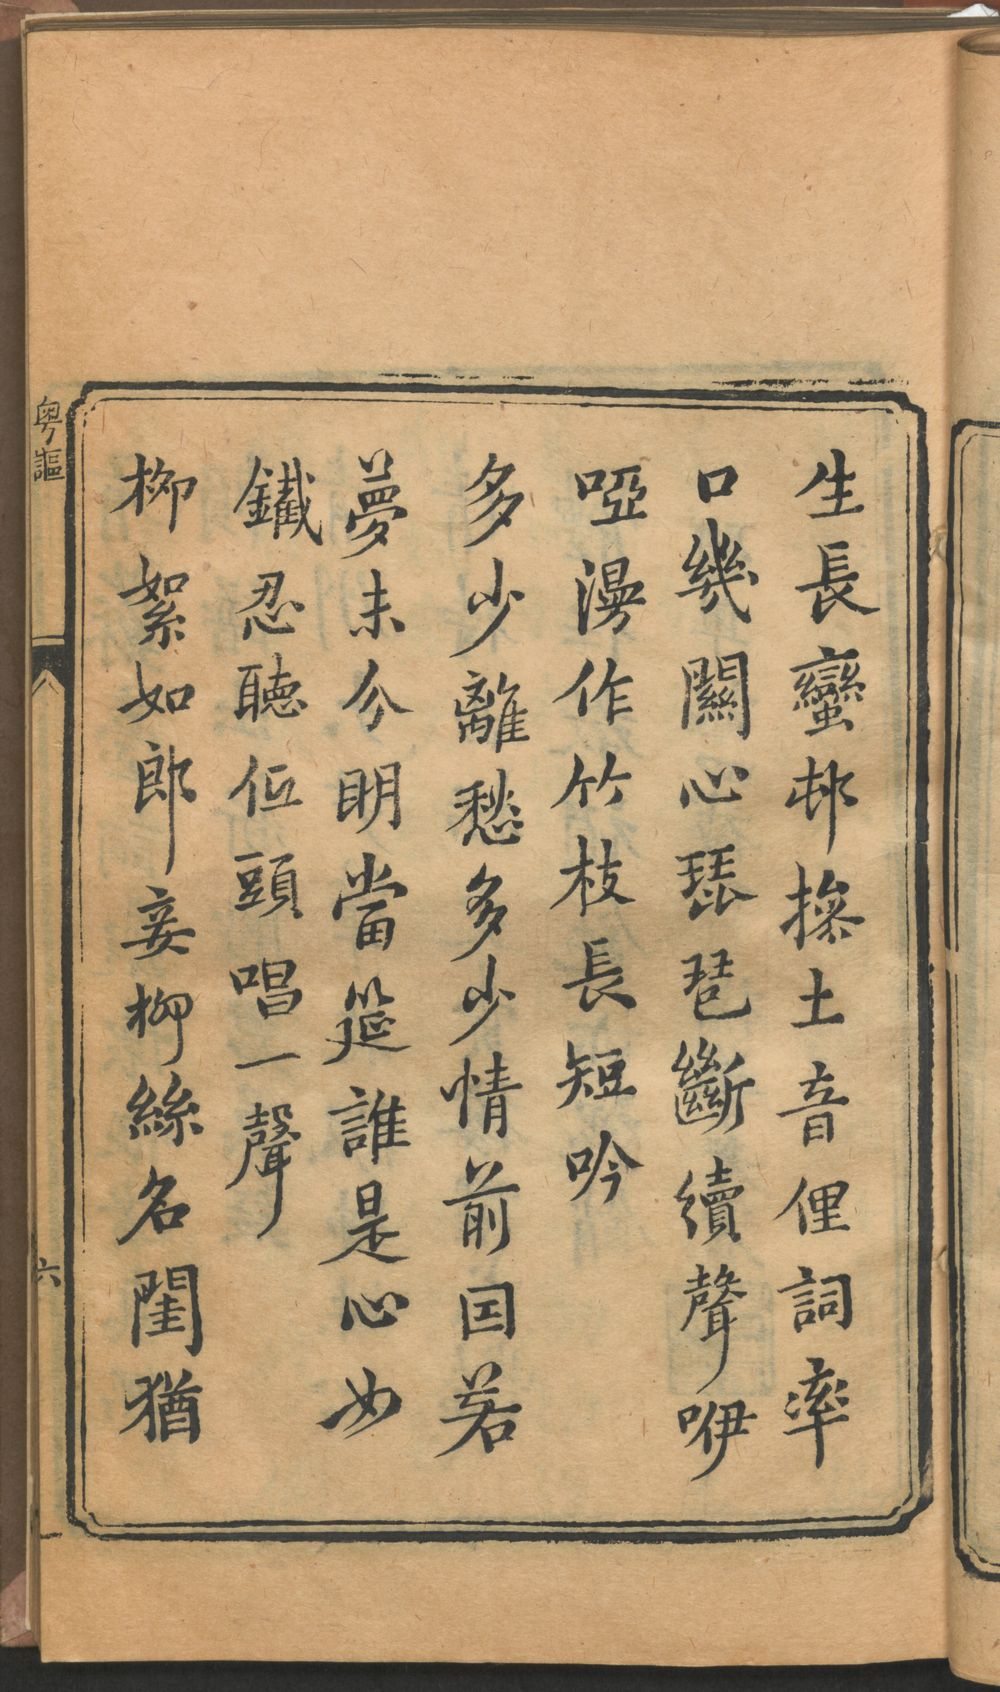 生長蠻邨操土音俚詞率
口幾關心琵琶斷續聲咿
啞漫作竹枝長短吟
多少離愁多少情前因若
夢未分明當筵誰是心如
鐵忍聽伍頭唱一聲
柳絮如郎妾柳絲名閨猶
粤謳
六